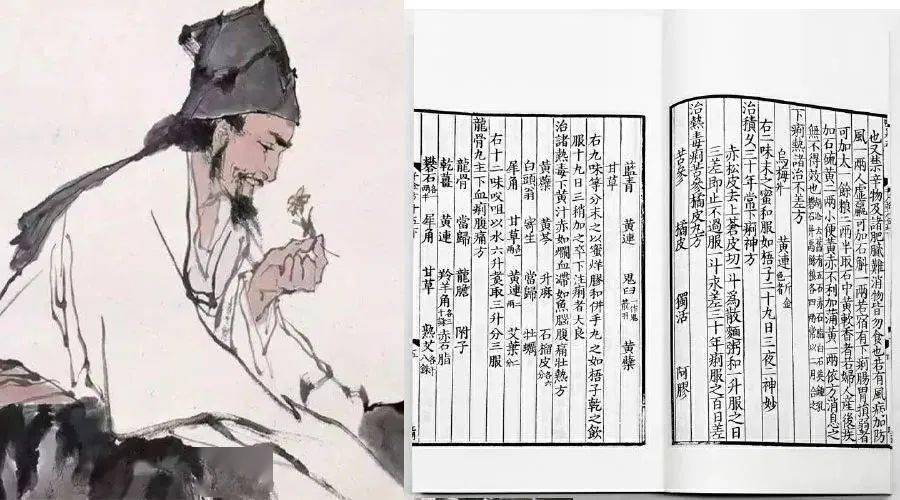 也又禁辛物及諸肥膩難消物皆勿食也若有風病加防
風一兩人虛羸可加石斛一兩若宿有下痢腸胃損弱者
可加太一餘粮二兩半取石中黃軟香者若婦人產後疾
加石硫黃二兩小便黃赤不利加蒲黃一兩依方消息之
無不得效也
下痢熱諸治不差方
烏梅 升 黃連 一斤金色者
右二味末之蜜和服如梧子二十丸日三夜二神妙
治積久三十年常下痢神方
赤松皮去上蒼皮切一斗為散麵粥和一升服之日
三差即止不過服一斗永差三十年痢服之百日差
治熱毒痢苦參橘皮丸方
苦參 橘皮 獨活 阿膠
藍青 黃連 鬼臼 黃蘗
甘草
右九味等分末之以蜜烊膠和併手丸之如梧子乾之飲
服十丸日三稍加之卒下注痢者大良
治諸熱毒下黃汁赤如爛血滯如魚腦腹痛壯熱方
黃蘗 黃芩 升麻 石榴皮 各六分
白頭翁 寄生 當歸 牡蠣
犀角 甘草 黃連 艾葉
右十二味㕮咀以水六升煮取三升分三服
龍骨丸主下血痢腹痛方
龍骨 當歸 龍膽 附子
乾薑 羚羊角 赤石脂
礬石 犀角 甘草 熟艾